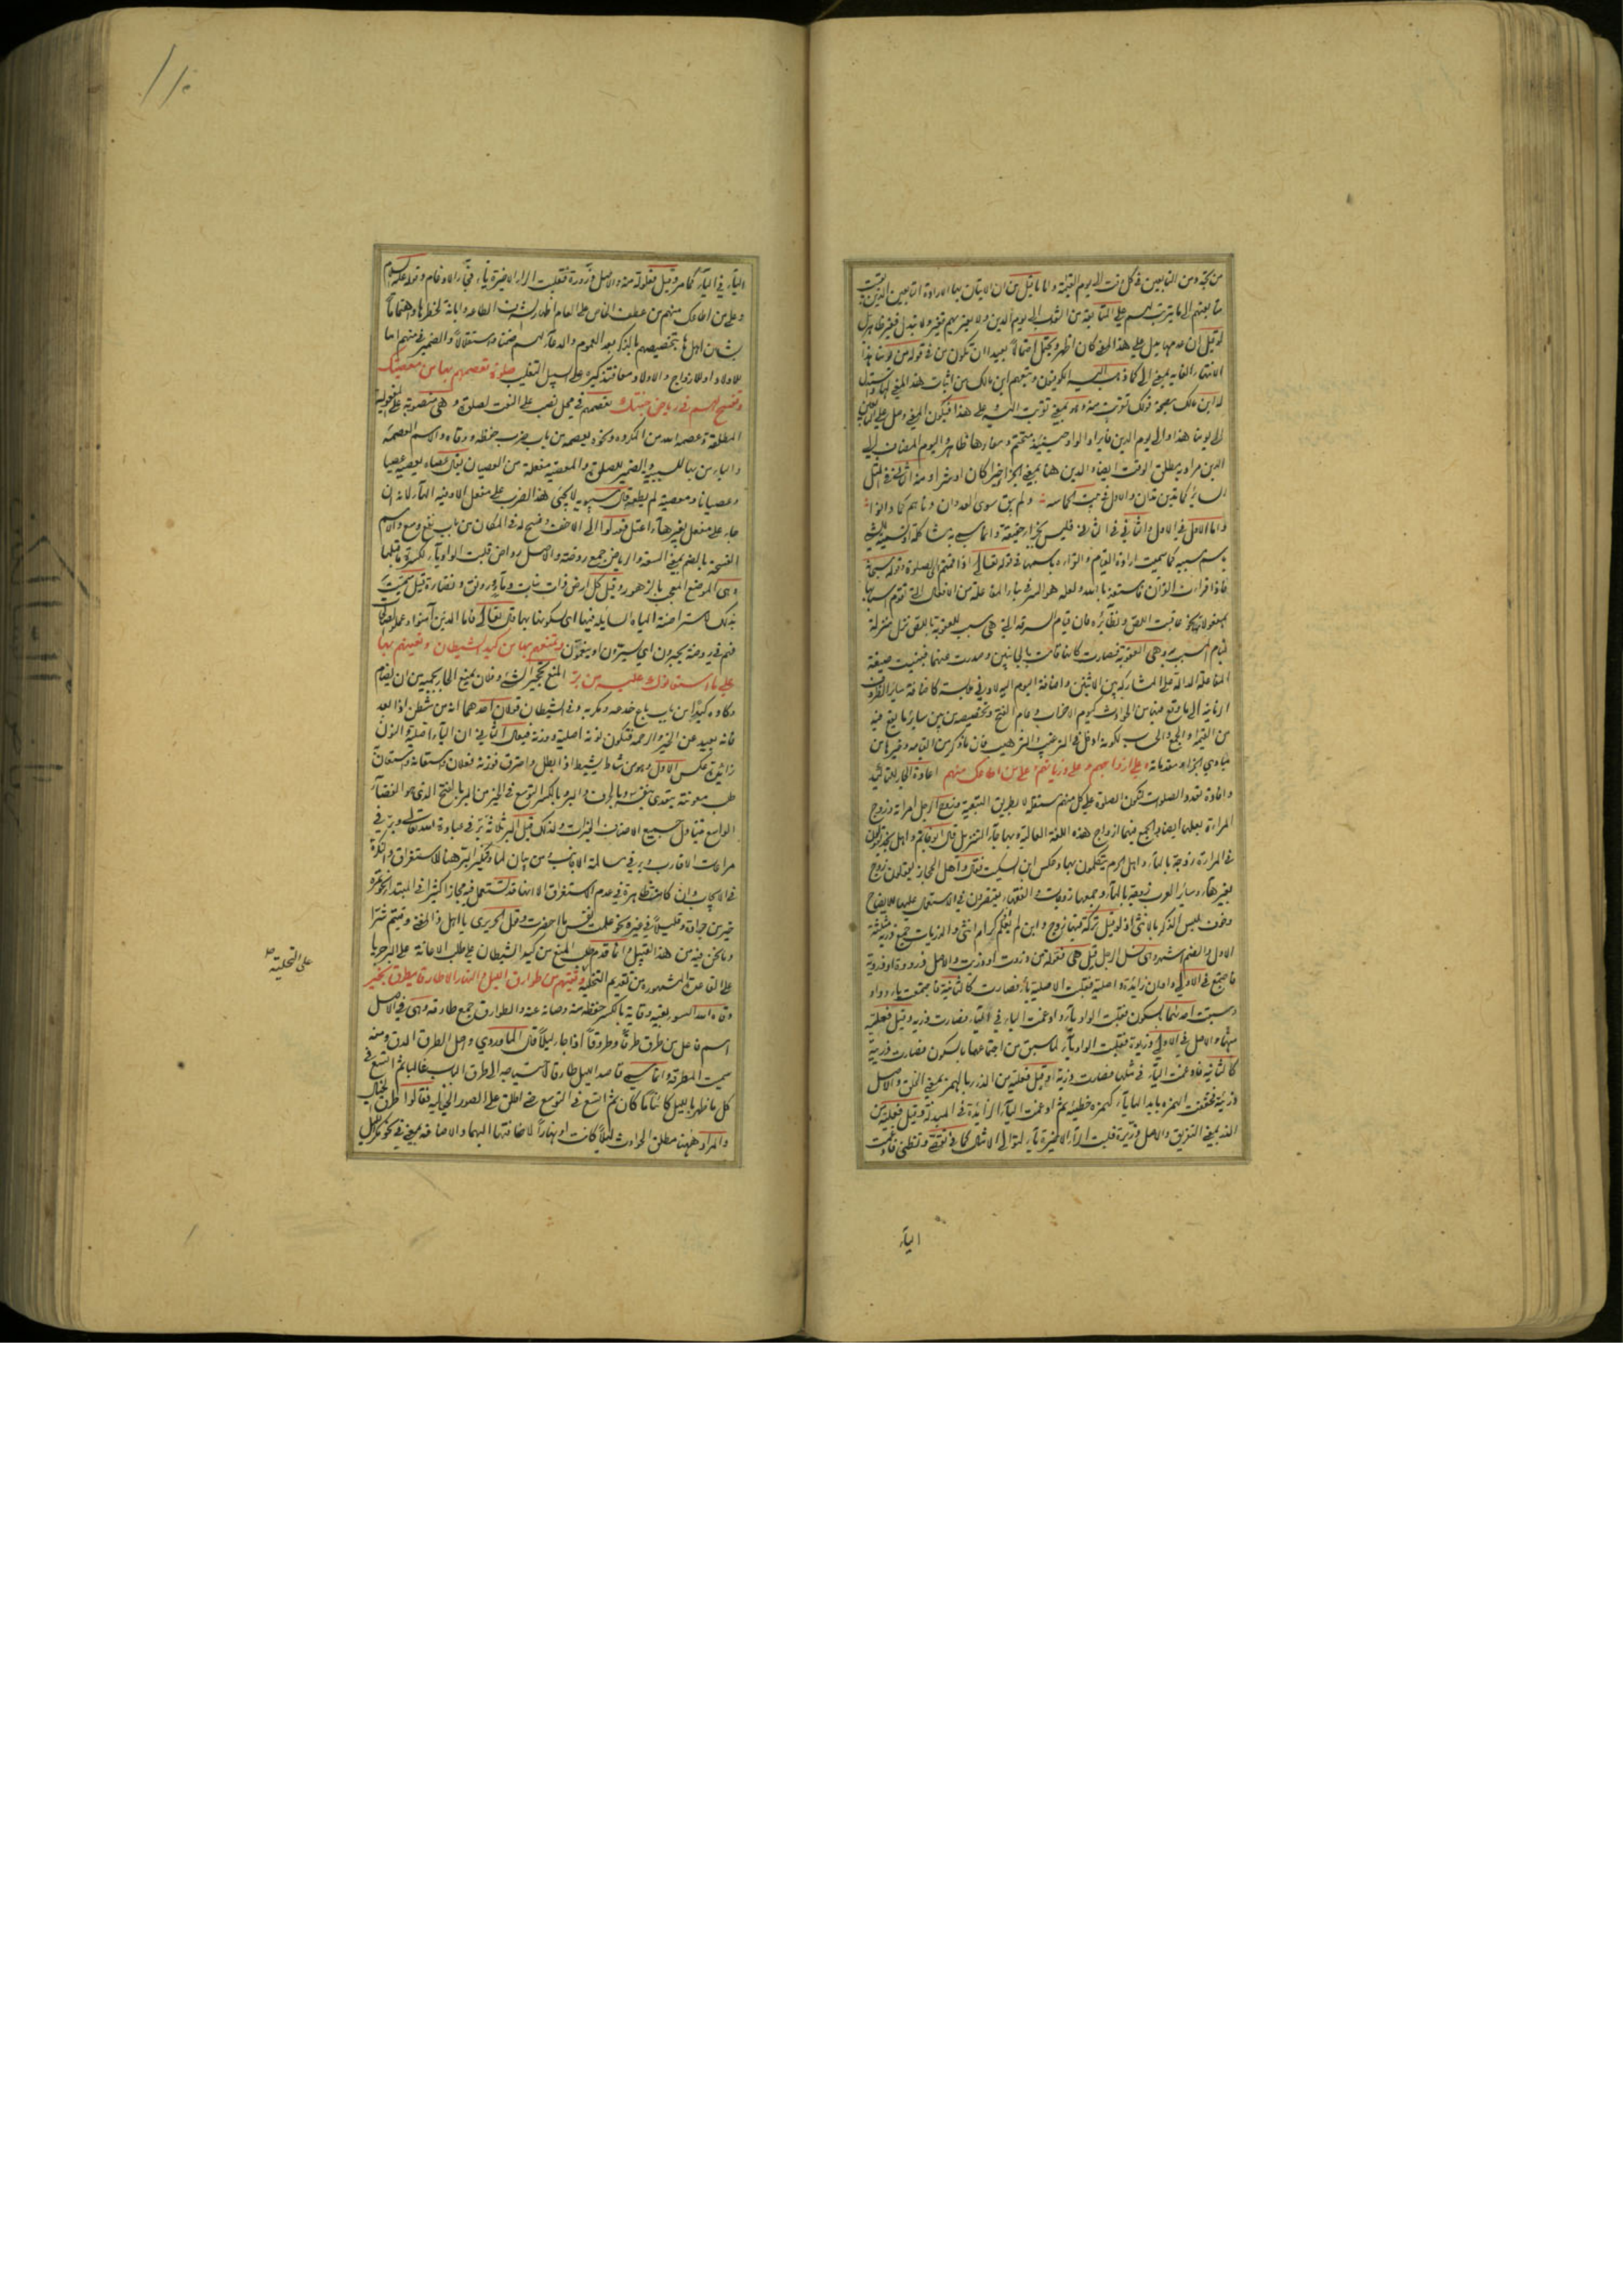 من تبعه ومن التابعين في كل وقت الى يوم القيمة واما ما قيل من ان الاتيان بها لارادة التابعين الذين
متابعتهم الى ما يترتب لهم على المتابعة من الثواب الى يوم الدين ولا يعتريهم تغير ولا تبدل
لو قيل ان على هذا المعنى كان اظهر ويحتمل احتمالا بعيدا ان تكون من في قوله من يومنا هذا
لانتهاء الغاية بمعنى الى كما ذهب اليه الكوفيون وتبعهم ابن مالك من اثبات هذا المعنى لها واستدل
له ابن مالك بصحة قولك قربت منه بمعنى قربت اليه وعلى هذا فيكون المعنى وصل على التابعين
الى يومنا هذا والى يوم الدين فايراد الواو حينئذ متحتم ومفادها ظاهر واليوم المضاف الى
الدين مراد به مطلق الوقت ايضا والدين هنا بمعنى الجزاء خيرا كان او شرا ومنه الثاني في المثل
السائر كما تدين تدان والاول في بيت الحماسة ولم يبق سوى العدوان دناهم كما دانوا
واما الاول في الاول والثاني في الثاني فليس بجزاء حقيقة وانما سمي به مشاكلة او تسمية للشيء
باسم سببه كما سميت ارادة القيام والقراءة باسمهما في قوله تعالى اذا قمتم الى الصلوة وقوله سبحانه
فاذا قرات القرآن فاستعذ بالله ولعله هو السر في بناء المفاعلة من الافعال التي تقوم اسبابها
بمفعولاتها نحو عاقبت اللص ونظائره فان قيام السرقة التي هي سبب للعقوبة باللص نزل منزلة
قيام المسبب به وهي العقوبة فصارت كانها قامت بالجانبين وصدرت عنهما فبنيت صيغة
المفاعلة الدالة على المشاركة بين الاثنين واضافة اليوم اليه لادنى ملابسة كاضافة سائر الظروف
الزمانية الى ما وقع فيها من الحوادث كيوم الاحزاب وعام الفتح وتخصيصه من بين سائر ما يقع فيه
من القيمة والجمع والحساب لكونه ادخل في الترغيب والترهيب فان ما ذكر من القيامة وغيرها من
مبادي الجزاء ومقدماته وعلى ازواجهم وعلى ذرياتهم وعلى من اطاعك منهم اعادة الجار للتاكيد
وافادة تعدد الصلوات لتكون الصلوة على كل منهم مستقلة لا بطريق التبعية وزوج الرجل امراته وزوج
المراة بعلها ايضا والجمع فيهما ازواج هذه اللغة العالية وبها جاء التنزيل قال ابو حاتم واهل نجد يقولون
في المراة زوجة بالهاء واهل الحرم يتكلمون بها وعكس ابن السكيت فقال واهل الحجاز يقولون زوج
بغير هاء وسائر العرب زوجة بالهاء وجمعها زوجات والفقهاء يقتصرون في الاستعمال عليها للايضاح
وخوف لبس الذكر بالانثى اذ لو قيل تركة فيها زوج وابن لم يعلم اذكر ام انثى والذريات جمع ذرية مثلثة
الاول والضم اشهر وهي نسل الرجل قيل هي فعولة من ذروت او ذريت والاصل ذرووة او ذروية
فاجتمع في الاول واوان زائدة واصلية فقلبت الاصلية ياء فصارت كالثانية فاجتمعت ياء وواو
وسبقت احداهما بالسكون فقلبت الواو ياء وادغمت الياء في الياء فصارت ذرية وقيل فعلية
منهما والاصل في الاولى ذريوة فقلبت الواو ياء لما سبق من اجتماعهما بالسكون فصارت ذريية
كالثانية فادغمت الياء في مثلها فصارت ذرية وقيل فعلية من الذرء بالهمز بمعنى الخلق والاصل
ذريئة فخففت الهمزة بابدالها ياء كهمزة خطيئة ثم ادغمت الياء الزائدة في المبدلة وقيل فعلية من
الذر بمعنى التفريق والاصل ذريرة قلبت الراء الاخيرة ياء لتوالي الامثال كما في تقضى وتظنى فادغمت
الياء
الياء في الياء كما مر وقيل فعلولة منه والاصل ذرورة فقلبت الراء الاخيرة ياء فجاء الادغام وقوله عليه السلام
وعلى من اطاعك منهم من عطف الخاص على العام اظهارا لشرف الطاعة وابانة لخطرها واهتماما
بشان اهلها بتخصيصهم بالذكر بعد العموم والدعاء لهم ضمنا واستقلالا والضمير في منهم اما
للاولاد او للازواج والاولاد معا فتذكيره على سبيل التغليب صلوة تعصمهم بها من معصيتك
وتفسح لهم في رياض جنتك تعصمهم في محل نصب على النعت لصلوة وهي منصوبة على المفعولية
المطلقة وعصمه الله من المكروه ونحوه يعصمه من باب ضرب حفظه ووقاه والاسم العصمة
والباء من بها للسببية والضمير للصلوة والمعصية مفعلة من العصيان يقال عصاه يعصيه عصيا
وعصيانا ومعصية لم يطعه قال سيبويه لا يجئ هذا الضرب على مفعل الا وفيه الهاء لانه ان
جاء على مفعل بغير هاء اعتل فعدلوا الى الاخف وفسح له في المكان من باب نفع وسع والاسم
الفسحة بالضم بمعنى السعة والرياض جمع روضة والاصل رواض قلبت الواو ياء لكسرة ما قبلها
وهي الموضع المعجب بالزهور وقيل كل ارض ذات نبات وماء ورونق ونضارة قيل سميت
بذلك لاستراضة المياه السائلة فيها اي لسكونها بها قال تعالى فاما الذين آمنوا وعملوا الصالحات
فهم في روضة يحبرون اي يسرون او ينعمون وتمنعهم بها من كيد الشيطان وتعينهم بها
على ما استعانوك عليه من بر المنع تحجير الشيء وفلان يمنع الجار يحميه من ان يضام
وكاده كيدا من باب باع خدعه ومكر به وفي الشيطان قولان احدهما انه من شطن اذا بعد
فانه بعيد عن الخير والرحمة فتكون نونه اصلية ووزنه فيعال الثاني ان الياء اصلية والنون
زائدة عكس الاول وهو من شاط يشيط اذا بطل واحترق فوزنه فعلان واستعانه واستعان به
طلب معونته يتعدى بنفسه وبالحرف والبر بالكسر التوسع في الخير من البر بالفتح الذي هو الفضاء
الواسع فيتناول جميع الاصناف الخيرات ولذلك قيل البر ثلاثة بر في عبادة الله تعالى وبر في
مراعات الاقارب وبر في معاملة الاجانب ومن بيان لما وتنكير البر هنا للاستغراق والنكرة
في الايجاب وان كانت ظاهرة في عدم الاستغراق الا انها قد تستعمل فيه مجازا كثيرا في المبتدا نحو تمرة
خير من جرادة وقليلا في غيره نحو علمت نفس ما احضرت وقول الحريري يا اهل ذا المغنى وقيتم شرا
وما نحن فيه من هذا القبيل وانما قدم طلب المنع من كيد الشيطان على طلب الاعانة على البر جريا
على القاعدة المشهورة من تقديم التخلية وتقيهم من طوارق الليل والنهار الا طارقا يطرق بخير
وقاه الله السوء يقيه وقاية بالكسر حفظه منه وصانه عنه والطوارق جمع طارقة وهي في الاصل
اسم فاعل من طرق طرقا وطروقا اذا جاء ليلا قال الماوردي واصل الطرق الدق ومنه
سميت المطرقة وانما سمي قاصد الليل طارقا لاحتياجه الى طرق الباب غالبا ثم اتسع في
كل ما ظهر بالليل كائنا ما كان ثم اتسع في التوسع حتى اطلق على الصور الخيالية فقالوا طرق الخيال
والمراد ههنا مطلق الحوادث ليلا كانت او نهارا لاضافتها اليهما والاضافة بمعنى في نحو مكر الليل
على التحلية صح